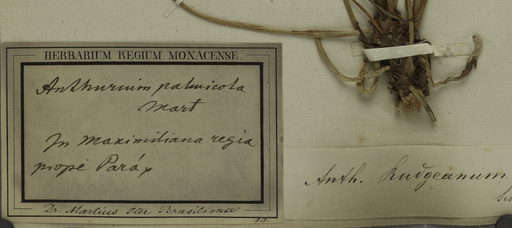 HERBARIUM REGIUM MONACENSE.
Anthurium palmicola
Mart
In Maximiliana regia
prope Pará,
Dr. Martius Iter Brasiliense
Anth. Rudgeanum